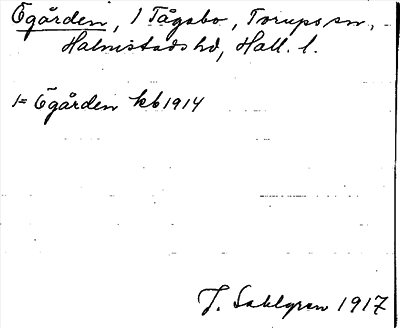 Ögården, 1 Tågabo, Torups sn,
Halmstads hd, Hall. l.
1= Ögården kb 1914
J. Sahlgren 1917